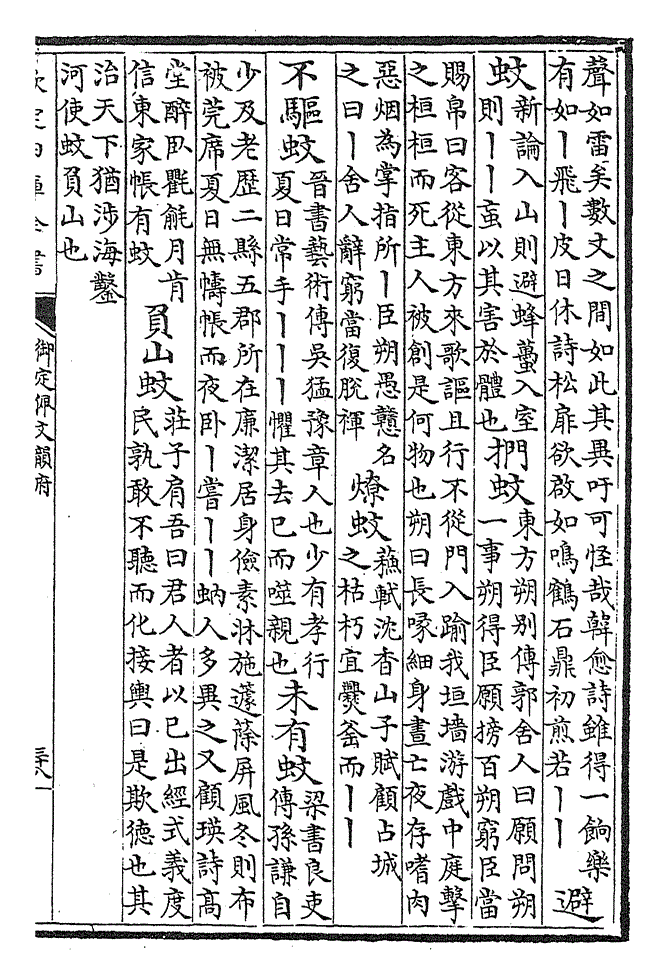 聲如雷矣數丈之間如此其異吁可怪哉韓愈詩雖得一餉樂
有如丨飛丨皮日休詩松扉欲啟如鳴鶴石鼎初煎若丨丨
避
蚊
新論入山則避蜂蠆入室
則丨丨䖟以其害於體也
捫蚊
東方朔别傳郭舍人曰願問朔
一事朔得臣願搒百朔窮臣當
賜帛曰客從東方來歌謳且行不從門入踰我垣墻游戲中庭擊
之桓桓而死主人被創是何物也朔曰長喙細身晝亡夜存嗜肉
惡烟為掌指所丨臣朔愚戇名
之曰丨舍人辭窮當復脫褌
燎蚊
蘇軾沈香山子賦顧占城
之枯朽宜爨釜而丨丨
不驅蚊
晉書藝術傳吳猛豫章人也少有孝行
夏日常手丨丨丨懼其去已而噬親也
未有蚊
梁書良吏
傳孫謙自
少及老歷二縣五郡所在廉潔居身儉素牀施蘧蒢屏風冬則布
被莞席夏日無幬帳而夜卧丨嘗丨丨蚋人多異之又顧瑛詩高
堂醉卧氍毹月肯
信東家帳有蚊
負山蚊
莊子肩吾曰君人者以已出經式義度
民孰敢不聽而化接輿曰是欺德也其
治天下猶涉海鑿
河使蚊負山也
欽定四庫全書
御定佩文韻府